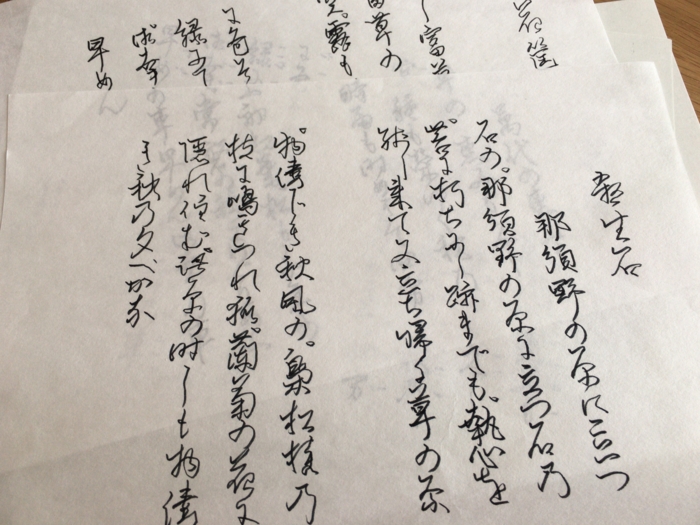 花筐
富草の
露も
早めん
殺生石
那須野の原に立つ
石の。那須野の原に立つ石乃
苔に朽ちにし跡までも。執心を
残し来て又立ち帰る草の原
物凄じき秋風の。梟松桂乃
枝に鳴きつれ狐。蘭菊の花に
隠れ住む。此原の時しも物凄
き秋乃夕べかな